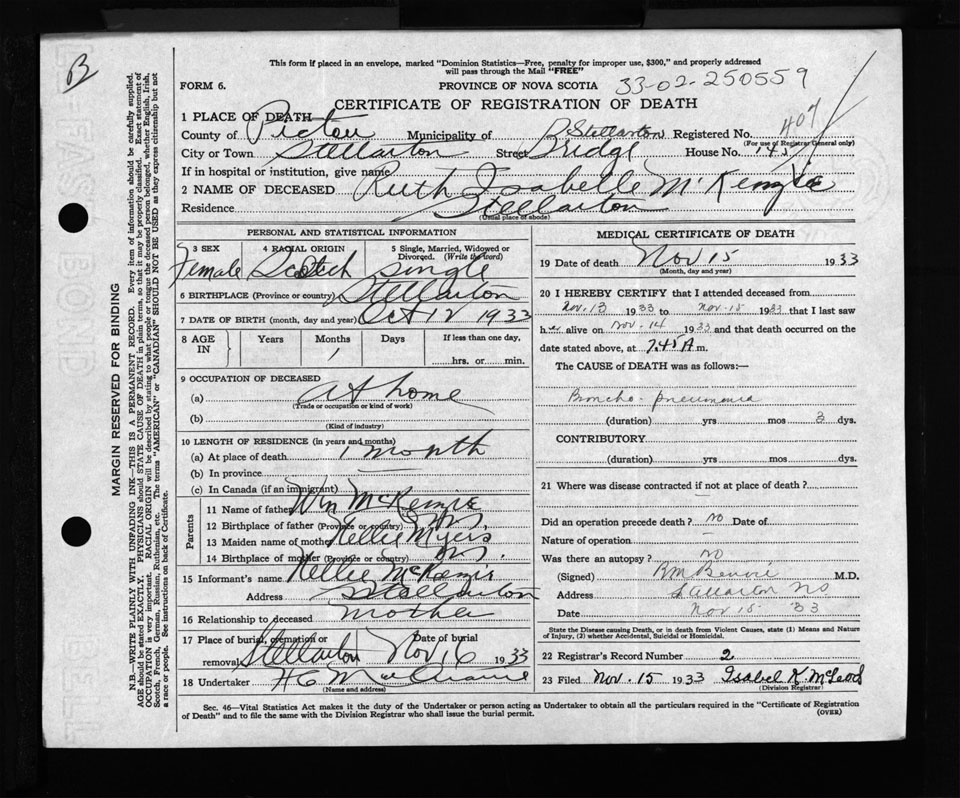 B
This form if placed in an envelope, marked "Dominion Statistics—Free, penalty for improper use, $300," and properly addressed
will pass through the Mail "FREE"
FORM 6.
PROVINCE OF NOVA SCOTIA
33-02-250559
CERTIFICATE OF REGISTRATION OF DEATH
1 PLACE OF DEATH
407
County of Pictou Municipality of (Stellarton) Registered No.
(For use of Registrar General only)
City or Town Stellarton Street Bridge House No.
If in hospital or institution, give name
2 NAME OF DECEASED Ruth Isabelle McKenzie
Residence Stellarton
(Usual place of abode)
PERSONAL AND STATISTICAL INFORMATION
3 SEX 4 RACIAL ORIGIN 5 Single, Married, Widowed or Divorced. (Write the word)
Female Scotch single
6 BIRTHPLACE (Province or country) Stellarton
7 DATE OF BIRTH (month, day and year) Oct 12 1933
8 AGE IN Years Months Days If less than one day,
1 hrs. or min.
9 OCCUPATION OF DECEASED
(a) at home
(Trade or occupation or kind of work)
(b)
(Kind of industry)
10 LENGTH OF RESIDENCE (in years and months)
(a) At place of death 1 month
(b) In province —
(c) In Canada (if an immigrant)
Parents
11 Name of father Wm McKenzie
12 Birthplace of father (Province or country) N.S.
13 Maiden name of mother Nellie Myers
14 Birthplace of mother (Province or country) N.S.
15 Informant's name Nellie McKenzie
Address Stellarton
16 Relationship to deceased mother
17 Place of burial, cremation or removal Stellarton Date of burial Nov 16 1933
18 Undertaker
(Name and address)
MEDICAL CERTIFICATE OF DEATH
19 Date of death Nov 15 1933
(Month, day and year)
20 I HEREBY CERTIFY that I attended deceased from
Nov. 13 1933 to Nov. 15 1933 that I last saw
her alive on Nov. 14 1933 and that death occurred on
date stated above, at 7.45 A m.
The CAUSE of DEATH was as follows:—
Broncho-pneumonia
(duration) yrs mos 3 dys.
CONTRIBUTORY
(duration) yrs mos dys.
21 Where was disease contracted if not at place of death?
—
Did an operation precede death? no Date of
Nature of operation —
Was there an autopsy? no
(Signed) M.D.
Address Stellarton NS
Date Nov 15 33
State the Disease causing Death, or in death from Violent Causes, state (1) Means and Nature
of Injury, (2) whether Accidental, Suicidal or Homicidal.
22 Registrar's Record Number 2
23 Filed Nov. 15 1933 Isabel K. McLeod
(Division Registrar)
Sec. 46—Vital Statistics Act makes it the duty of the Undertaker or person acting as Undertaker to obtain all the particulars required in the "Certificate of Registration
of Death" and to file the same with the Division Registrar who shall issue the burial permit.
(OVER)
MARGIN RESERVED FOR BINDING
N.B.—WRITE PLAINLY WITH UNFADING INK—THIS IS A PERMANENT RECORD. Every item of information should be carefully supplied.
AGE should be stated EXACTLY. PHYSICIANS should STATE CAUSE OF DEATH in plain terms, so that it may be properly classified. Exact statement of
OCCUPATION is very important. RACIAL ORIGIN will be described by stating to what people or tongue the deceased person belonged, whether English, Irish,
Scotch, French, German, Russian, Ruthenian, etc. The terms "AMERICAN" or "CANADIAN" SHOULD NOT BE USED as they express citizenship but not
a race or people. See instructions on back of Certificate.